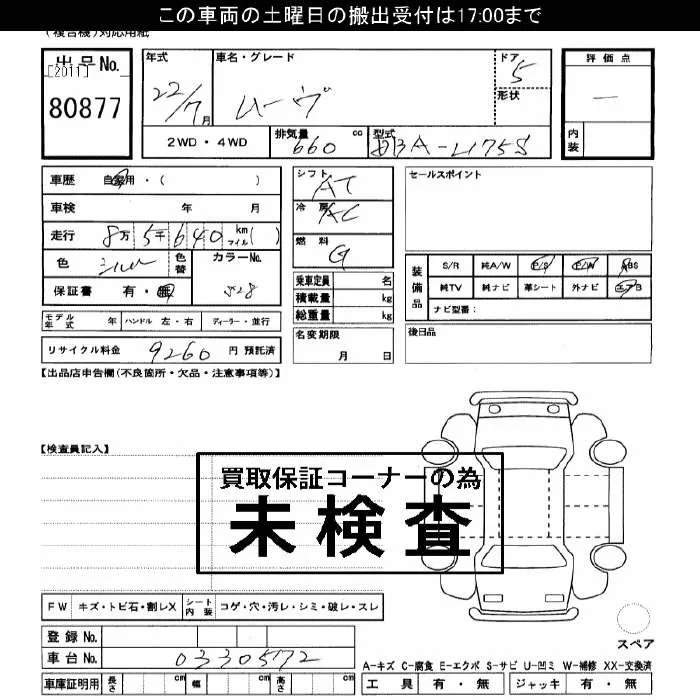 この車両の土曜日の搬出受付は17:00まで
(複合機)対応用紙
出品No.
[2011]
80877
年式
22/7 月
車名・グレード
ムーヴ
ドア
5
形状
2WD・4WD
排気量 660 cc
型式 DBA-L175S
評価点
―
内装
車歴 自家用・( )
車検 年 月
走行 8万 5千 640 km マイル( )
色 シルバー 色替
カラーNo. S28
保証書 有・無
モデル年式 年 ハンドル 左・右 ディーラー・並行
リサイクル料金 9260 円 預託済
シフト AT
冷房 AC
燃料 G
乗車定員 名
積載量 kg
総重量 kg
名変期限 月 日
セールスポイント
装備品
S/R 純A/W P/S P/W ABS
純TV 純ナビ 革シート 外ナビ エアB
ナビ型番:
後日品
【出品店申告欄(不良箇所・欠品・注意事項等)】
【検査員記入】
買取保証コーナーの為
未検査
FW キズ・トビ石・割レX シート内装 コゲ・穴・汚レ・シミ・破レ・スレ
登録No.
車台No. 0330572
車庫証明用 長さ cm 幅 cm 高さ cm
スペア
A-キズ C-腐食 E-エクボ S-サビ U-凹ミ W-補修 XX-交換済
工具 有・無 ジャッキ 有・無